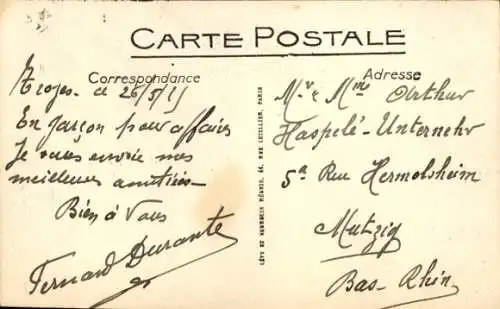 CARTE POSTALE
Correspondance
Troyes le 26/5/25
En garçon pour affaires
Je vous envoie mes
meilleures amitiés
Bien à Vous
Fernand Durante
LÉVY ET NEURDEIN RÉUNIS, 44, RUE LETELLIER, PARIS
Adresse
Mr & Mme Arthur
Haspelé-Unternehr
5a Rue Hermolsheim
Mutzig
Bas-Rhin